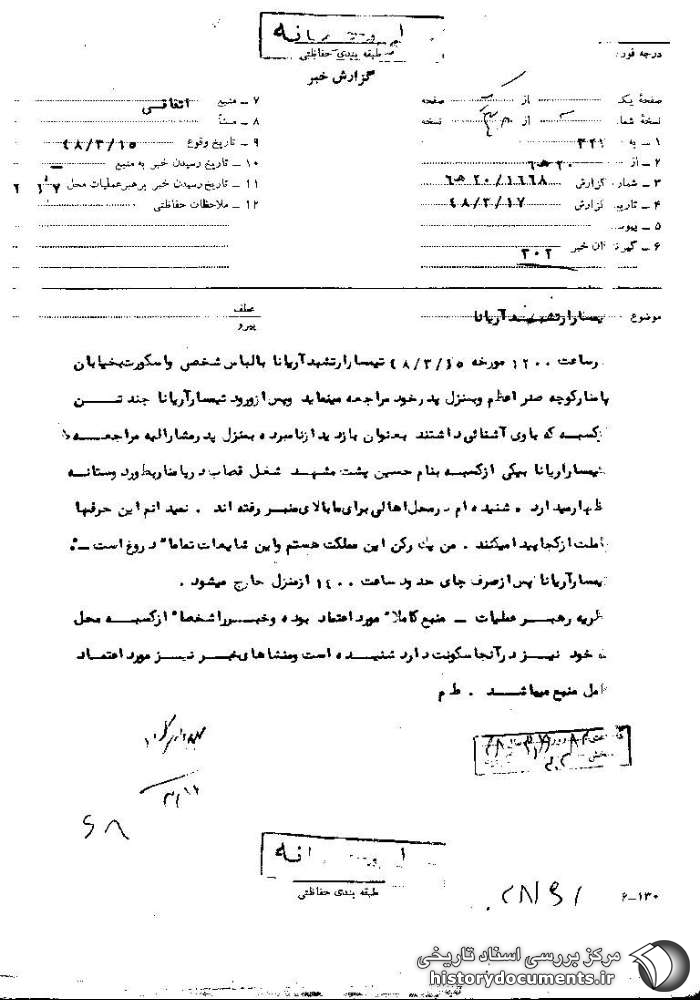 طبقه بندی حفاظتی
درجه فور
گزارش خبر
صفحهٔ یک از صفحه
نسخهٔ شما از نسخه
۱ ـ به
۲ ـ از ۲۰ ه‍ ۶
۳ ـ شمار گزارش ۱۶۶۸ / ۲۰ ه‍ ۶
۴ ـ تاریخ گزارش ۴۸/۳/۱۷
۵ ـ پیوست
۶ ـ گیرندگان خبر ۳۰۲
۷ ـ منبع اتفاقی
۸ ـ منشأ
۹ ـ تاریخ وقوع ۴۸/۳/۱۵
۱۰ ـ تاریخ رسیدن خبر به منبع
۱۱ ـ تاریخ رسیدن خبر برهبر عملیات محل
۱۲ ـ ملاحظات حفاظتی
موضوع یمسار ارتشبد آریانا
عطف
پیرو
رساعت ۱۲۰۰ مورخه ۴۸/۳/۱۵ تیمسار ارتشبد آریانا بالباس شخصی واسکورت بخیابان
پامنار کوچه صدر اعظم و بمنزل پدر خود مراجعه مینماید وپس از ورود تیمسار آریانا چند تن
زکسبه که باوی آشنائی داشتند بعنوان بازدید از نامبرده بمنزل پدر مشارالیه مراجعه
تیمسار آریانا بیکی از کسبه بنام حسین پشت مشهد شغل قصاب در پامنار بطور دوستانه
ظهار میدارد . شنیده ام در محل اهالی برای ما بالای منبر رفته اند . نمیدانم این حرفها
املت از کجا پیدا میکنند . من یک رکن این مملکت هستم و این شایعات تماما" دروغ است ـ
یمسار آریانا پس از صرف چای حدود ساعت ۱۴۰۰ از منزل خارج میشود .
ظریه رهبر عملیات ـ منبع کاملا" مورد اعتماد بوده و خبر را شخصا" از کسبه محل
ه خود نیز در آنجا سکونت دارد شنیده است و منشاهای خبر نیز مورد اعتماد
امل منبع میباشند . ط م
بخش
طبقه بندی حفاظتی
۶ـ۱۳۰
مرکز بررسی اسناد تاریخی
historydocuments.ir